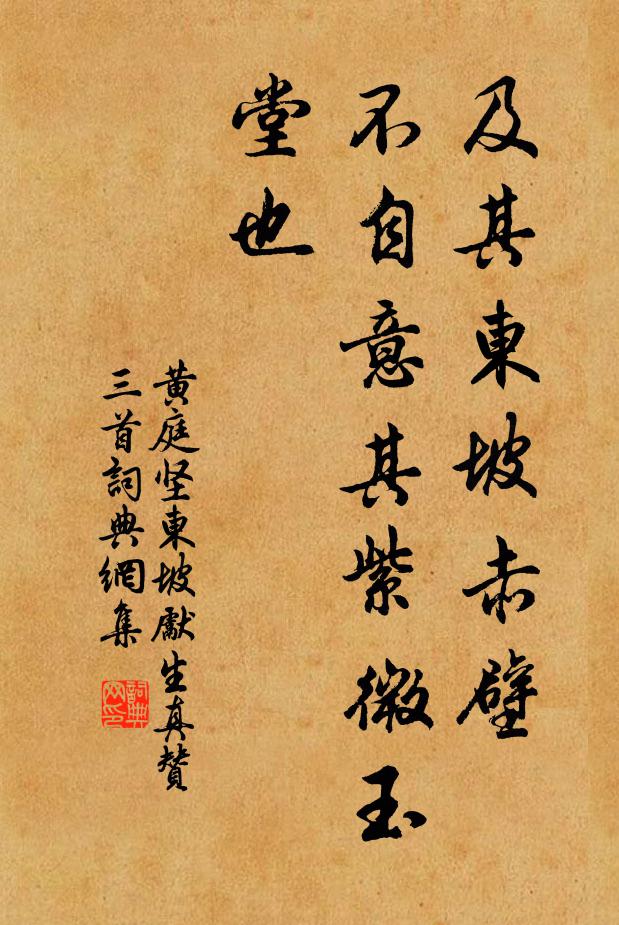 及其東坡赤壁
不自意其紫微玉
堂也
黄庭坚東坡獻生真贊
三首詞典網集
詞典
网印